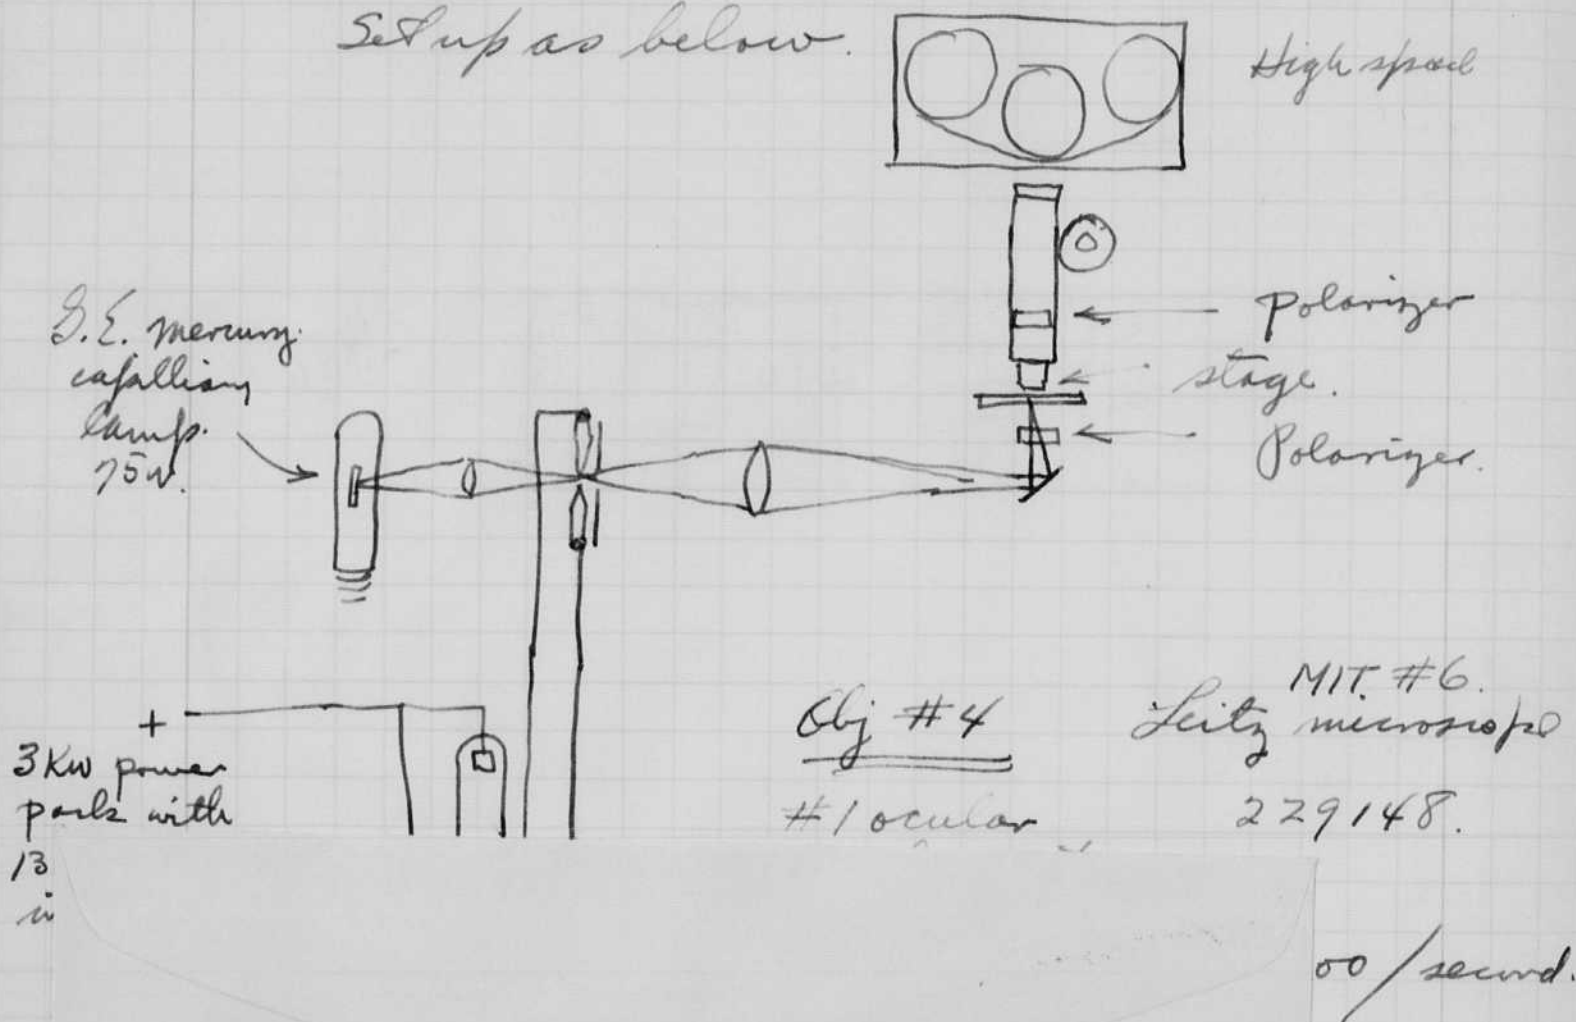 Set up as below.
High speed
G.E. mercury
capalliary
lamp.
75w.
Polarizer
stage.
Polarizer.
+
3 Kw power
pack with
13
in
Obj #4
#1 ocular
MIT. #6.
Leitz microscope
229148.
00/second.